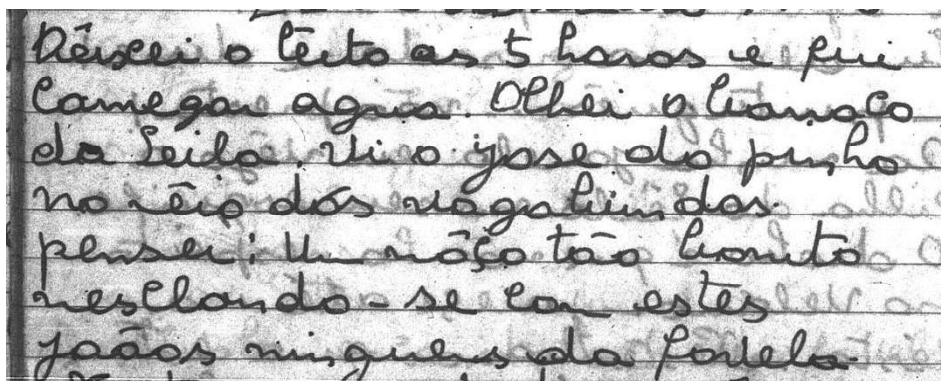 Dêixei o lêito as 5 horas e fui
carregar agua. Olhei o barraco
da Leila. Vi o José do pinho
no mêio dos vagabundos.
pensei: Um môço tão bonito
mesclando-se com estes
joãos ninguens da favela.